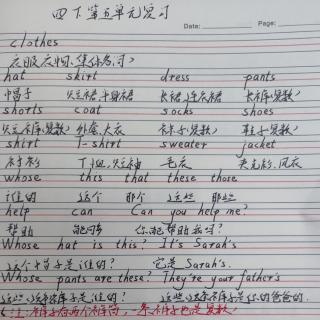 四下第五单元复习
Date: Page:
clothes
衣服衣物(集体名词)
hat skirt dress pants
帽子 短裙、半身裙 长裙、连衣裙 长裤(复数)
shorts coat socks shoes
短裤(复数) 外套、大衣 袜子(复数) 鞋子(复数)
shirt T-shirt sweater jacket
衬衫 T恤、短袖 毛衣 夹克衫、风衣
whose this that these those
谁的 这个 那个 这些 那些
help can Can you help me?
帮助 能、可以 你能帮助我吗?
Whose hat is this? It's Sarah's.
这个帽子是谁的? 它是 Sarah's.
Whose pants are these? They're your father's
这条裤子是谁的? 这条裤子是你的爸爸的.
注:裤子有两个裤筒,一条裤子也是复数